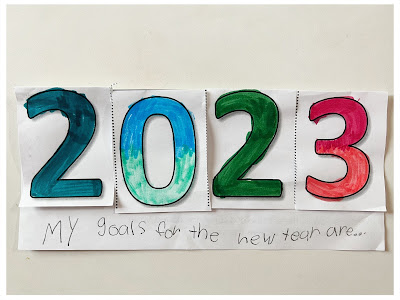 2023
My goals for the new tear are...